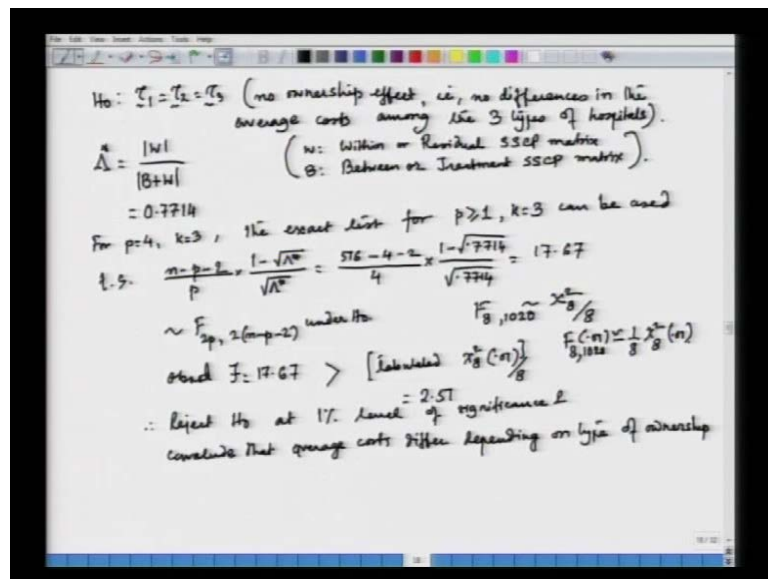 File Edit View Insert Actions Tools Help
H₀: τ₁ = τ₂ = τ₃ (no ownership effect, ie, no differences in the
average costs among the 3 types of hospitals).
Λ* = |W| / |B+W| (W: Within or Residual SSCP matrix
B: Between or Treatment SSCP matrix).
= 0.7714
For p=4, k=3, the exact test for p≥1, k=3 can be used
t.s. (n-p-2)/p × (1-√Λ*)/√Λ* = (516-4-2)/4 × (1-√.7714)/√.7714 = 17.67
~ F₂ₚ, ₂₍ₙ₋ₚ₋₂₎ under H₀ F₈,₁₀₂₀ ≈ χ²₈/8
obsd F = 17.67 > [tabulated χ²₈(.01)]/8 F₈,₁₀₂₀(.01) ≃ 1/8 χ²₈(.01)
= 2.51
∴ Reject H₀ at 1% level of significance &
conclude that average costs differ depending on type of ownership